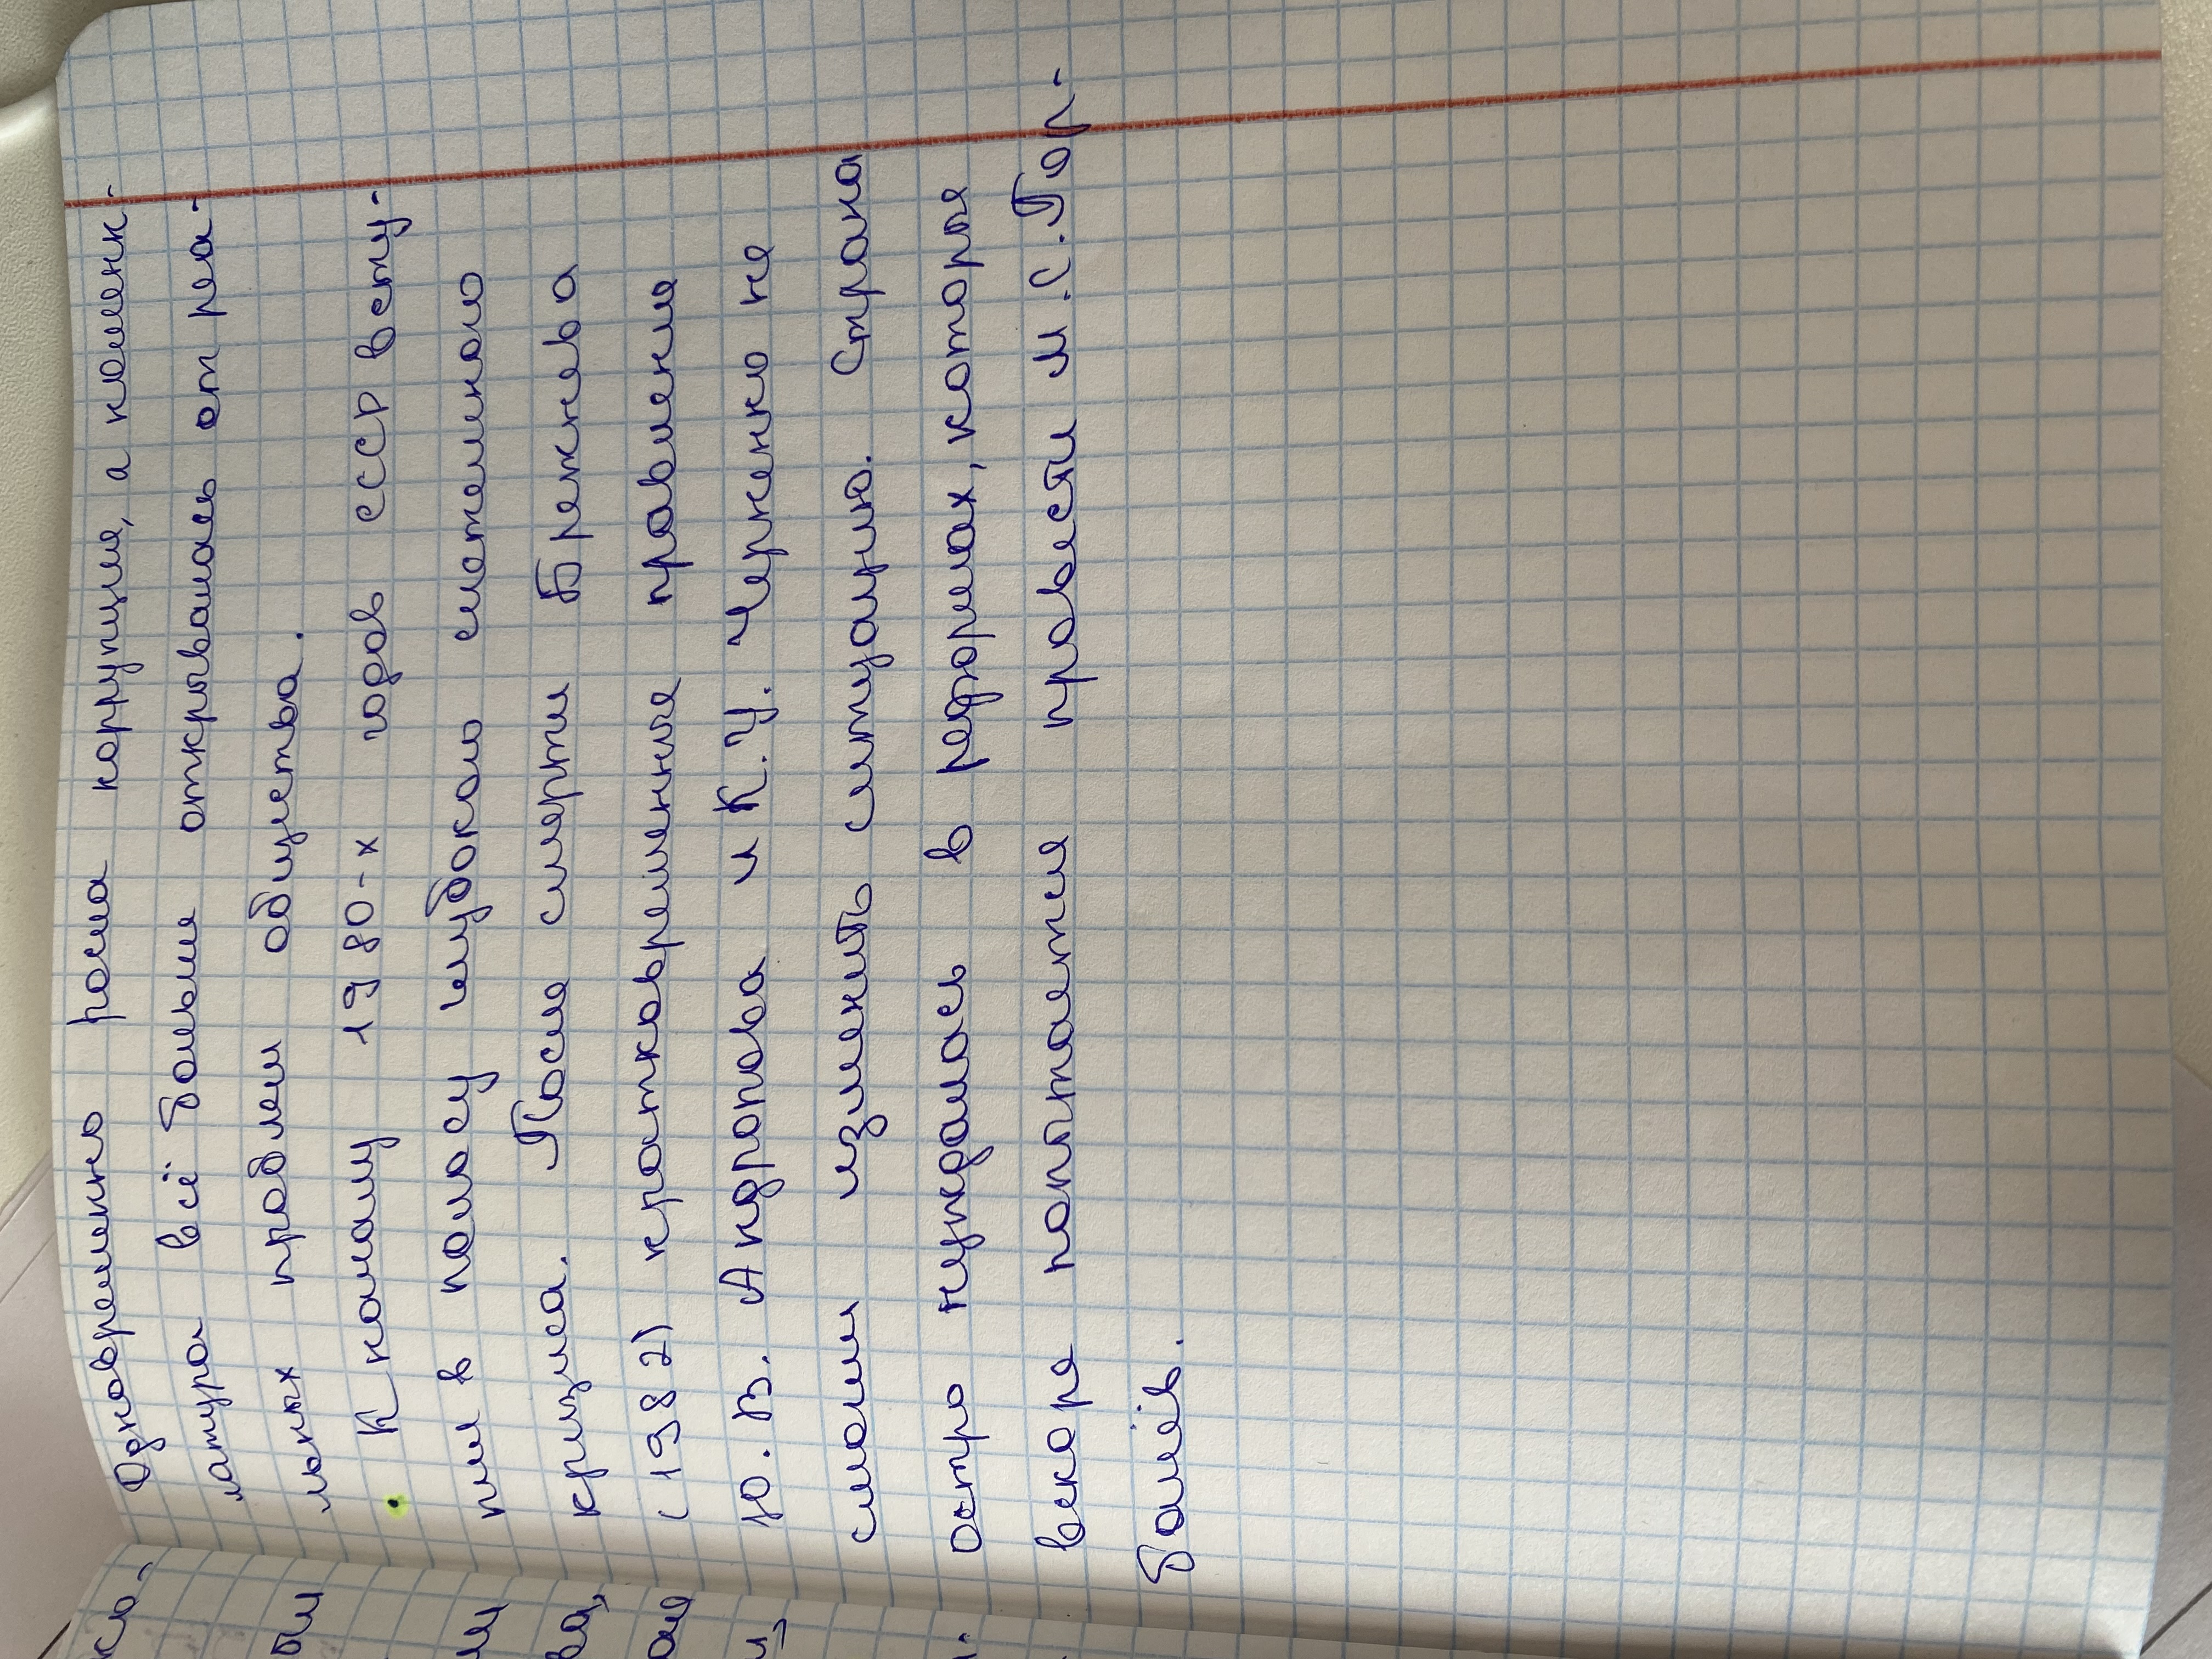 Одновременно росла коррупция, а номенк-
латура всё больше открывалась от реа-
льных проблем общества.
• К концу 1980-х годов СССР всту-
пил в полосу глубокого системного
кризиса. После смерти Брежнева
(1982) кратковременные правления
Ю.В. Андропова и К.У. Черненко не
смогли изменить ситуацию. Страна
остро нуждалась в реформах, которые
вскоре попытается провести М.С.Гор-
бачёв.